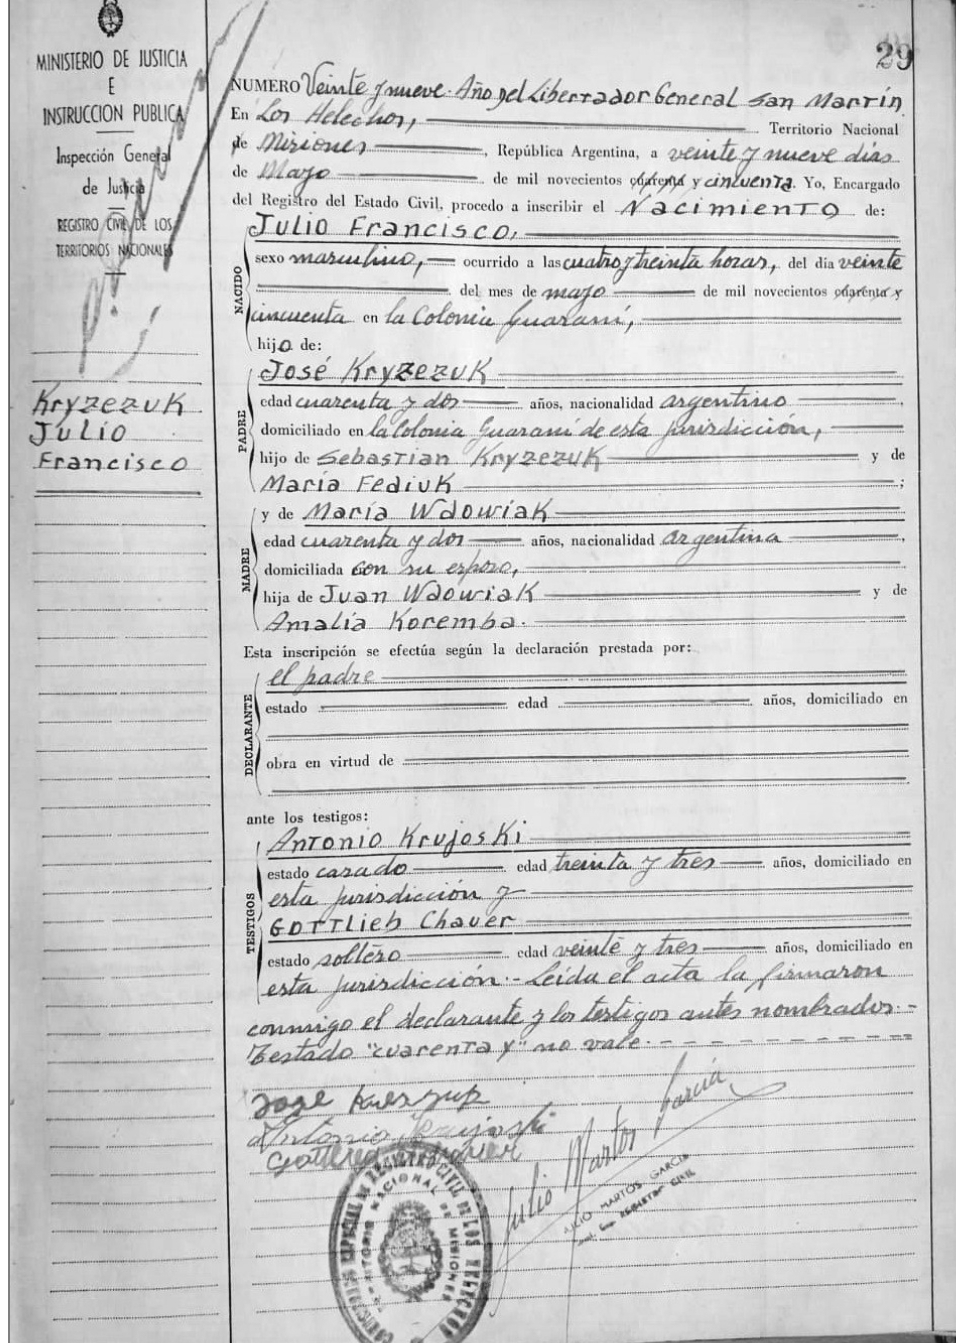 MINISTERIO DE JUSTICIA
E
INSTRUCCION PUBLICA
Inspección General
de Justicia
REGISTRO CIVIL DE LOS
TERRITORIOS NACIONALES
Kryzezuk
Julio
Francisco
29
NUMERO Veinte y nueve. Año Del Libertador General San Martín
En Los Helechos, Territorio Nacional
de Misiones, República Argentina, a veinte y nueve días
de Mayo de mil novecientos cuarenta y cincuenta. Yo, Encargado
del Registro del Estado Civil, procedo a inscribir el Nacimiento de:
NACIDO
Julio Francisco,
sexo masculino, ocurrido a las cuatro y treinta horas, del día veinte
del mes de mayo de mil novecientos cuarenta y
cincuenta en la Colonia Guaraní,
hijo de:
PADRE
José Kryzezuk
edad cuarenta y dos años, nacionalidad argentino,
domiciliado en la Colonia Guaraní de esta jurisdicción,
hijo de Sebastian Kryzezuk y de
María Fediuk;
MADRE
y de María Wdowiak
edad cuarenta y dos años, nacionalidad argentina,
domiciliada con su esposo,
hija de Juan Wdowiak y de
Amalia Koremba.
Esta inscripción se efectúa según la declaración prestada por:
DECLARANTE
el padre
estado edad años, domiciliado en
obra en virtud de
ante los testigos:
TESTIGOS
Antonio Krujoski
estado casado edad treinta y tres años, domiciliado en
esta jurisdicción y
Gottlieb Chaver
estado soltero edad veinte y tres años, domiciliado en
esta jurisdicción.- Leída el acta la firmaron
conmigo el declarante y los testigos antes nombrados.-
Testado "cuarenta y" no vale.-
José
Antonio Krujoski
Julio Martos García
JULIO MARTOS GARCIA
REGISTRO CIVIL DE LOS HELECHOS
TERRITORIO NACIONAL DE MISIONES